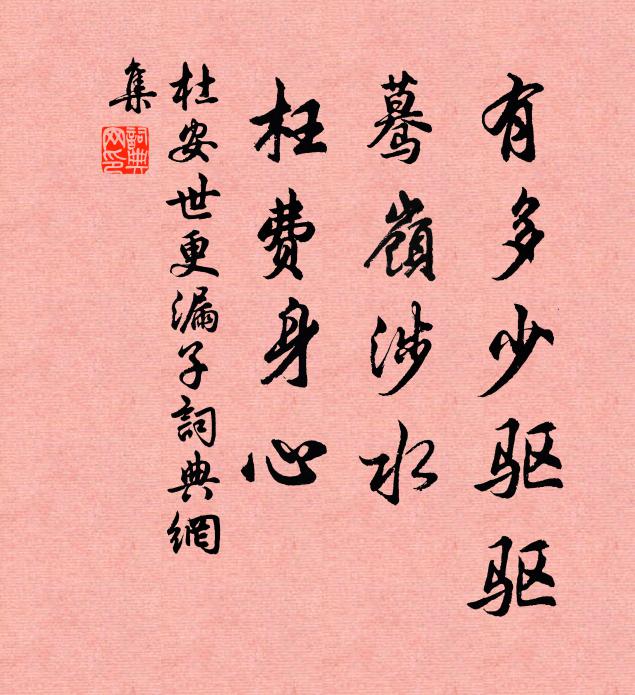 有多少驱驱
蓦嶺涉水
枉费身心
杜安世更漏子詞典網
集
詞典
网印